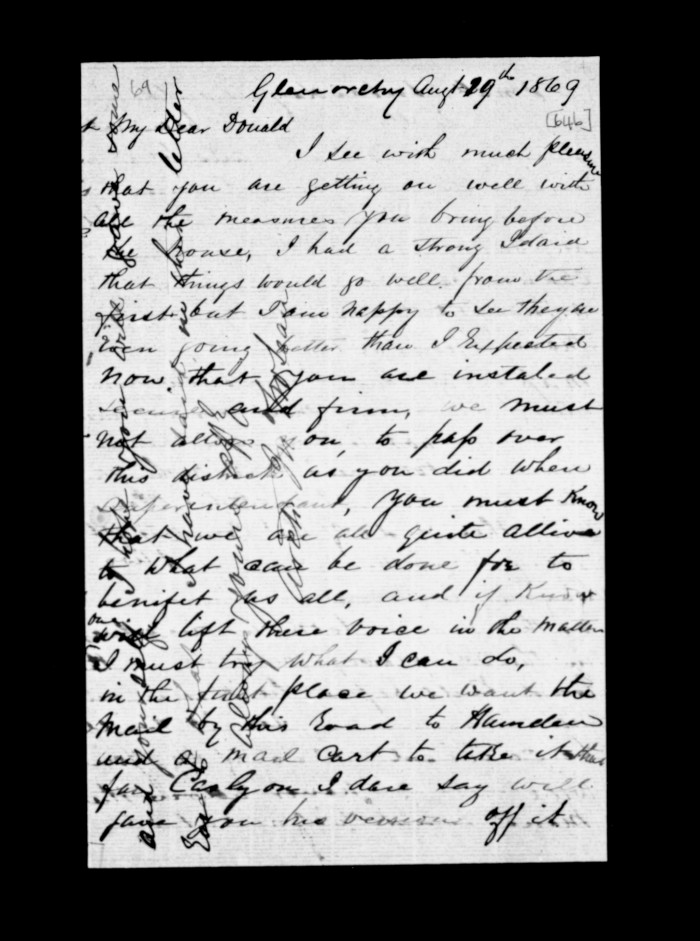 69
Glenorchy Augt 29th 1869
[646]
My Dear Donald
I see with much pleasure
that you are getting on well with
all the measures you bring before
the house, I had a strong Idaid
that things would go well from the
first but I am happy to see they are
even going better than I Expected
now that you are instaled
and firm, we must
not allow you, to pass over
this district as you did when
Superintendant, you must Know
that we are all quite allive
to what can be done for to
benifet us all, and if Know
one will lift there voice in the matter
I must try what I can do,
in the first place we want the
Mail by this Road to Hamden
and a mail cart to take it thus
far Carlyon I dare say will
gave you his version off it
and
I hope you will
have
letter
Yours